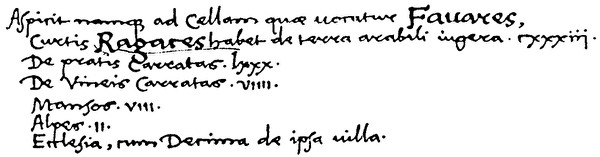 Aspicit namque ad Cellam quæ vocatur Favares,
Curtis Ragaces habet de terra arabili iugera . cxxxiii .
De pratis Carratas . lxxx .
De Vineis Carratas . viiii .
Mansos . viiii .
Alpes . ii .
Ecclesia, cum Decima de ipsa villa .